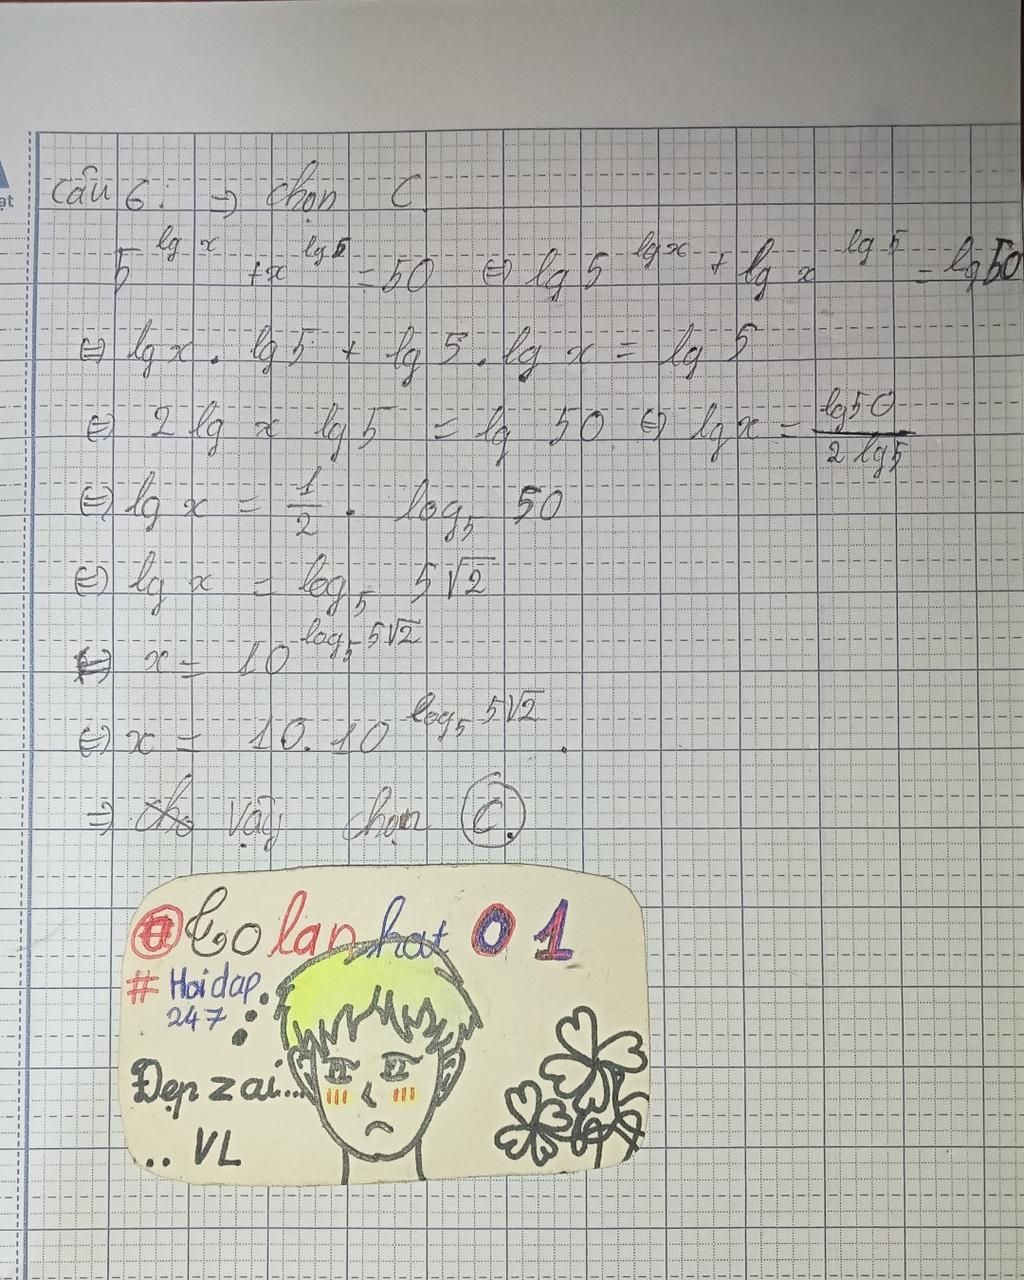 ạt
Câu 6: ⇒ chọn C.
5^{lg x} + x^{lg 5} = 50 ⇔ lg 5^{lg x} + lg x^{lg 5} = lg 50
⇔ lg x . lg 5 + lg 5 . lg x = lg 5
⇔ 2 lg x lg 5 = lg 50 ⇔ lg x = \frac{lg 50}{2 lg 5}
⇔ lg x = \frac{1}{2} . log_5 50
⇔ lg x = log_5 5√2
⇔ x = 10^{log_5 5√2}
⇔ x = 10. 10^{log_5 5√2} .
⇒ Vậy chọn C.
Lo lan hat 01
# Hoidap
247
Đẹp zai...
.. VL